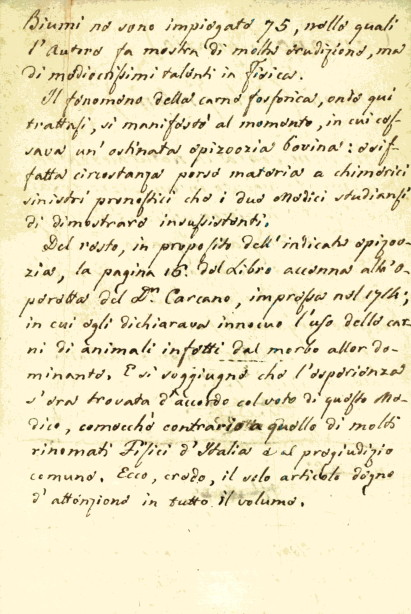 Biumi ne sono impiegate 75, nelle quali
l'Autore fa mostra di molta erudizione, ma
di mediocrissimi talenti in Fisica.
Il fenomeno della carne fosforica, onde qui
trattasi, si manifestò al momento, in cui ces-
sava un' ostinata epizoozia bovina:осsif-
fatta circostanza porse materia a chimerici
sinistri pronostici che i due Medici studiansi
di dimostrare insussistenti.
Del resto, in proposito dell' indicata epizoo-
zia, la pagina 16. del Libro accenna all'o-
peretta del D.r Carcano, impressa nel 1714;
in cui egli dichiarava innocuo l'uso delle car-
ni di animali infetti dal morbo allor do-
minante. E si soggiugne che l'esperienza
s'era trovata d'accordo col voto di questo Me-
dico, comechè contrario a quello di molti
rinomati Fisici d'Italia e al pregiudizio
comune. Ecco, credo, il solo articolo degno
d'attenzione in tutto il volume.